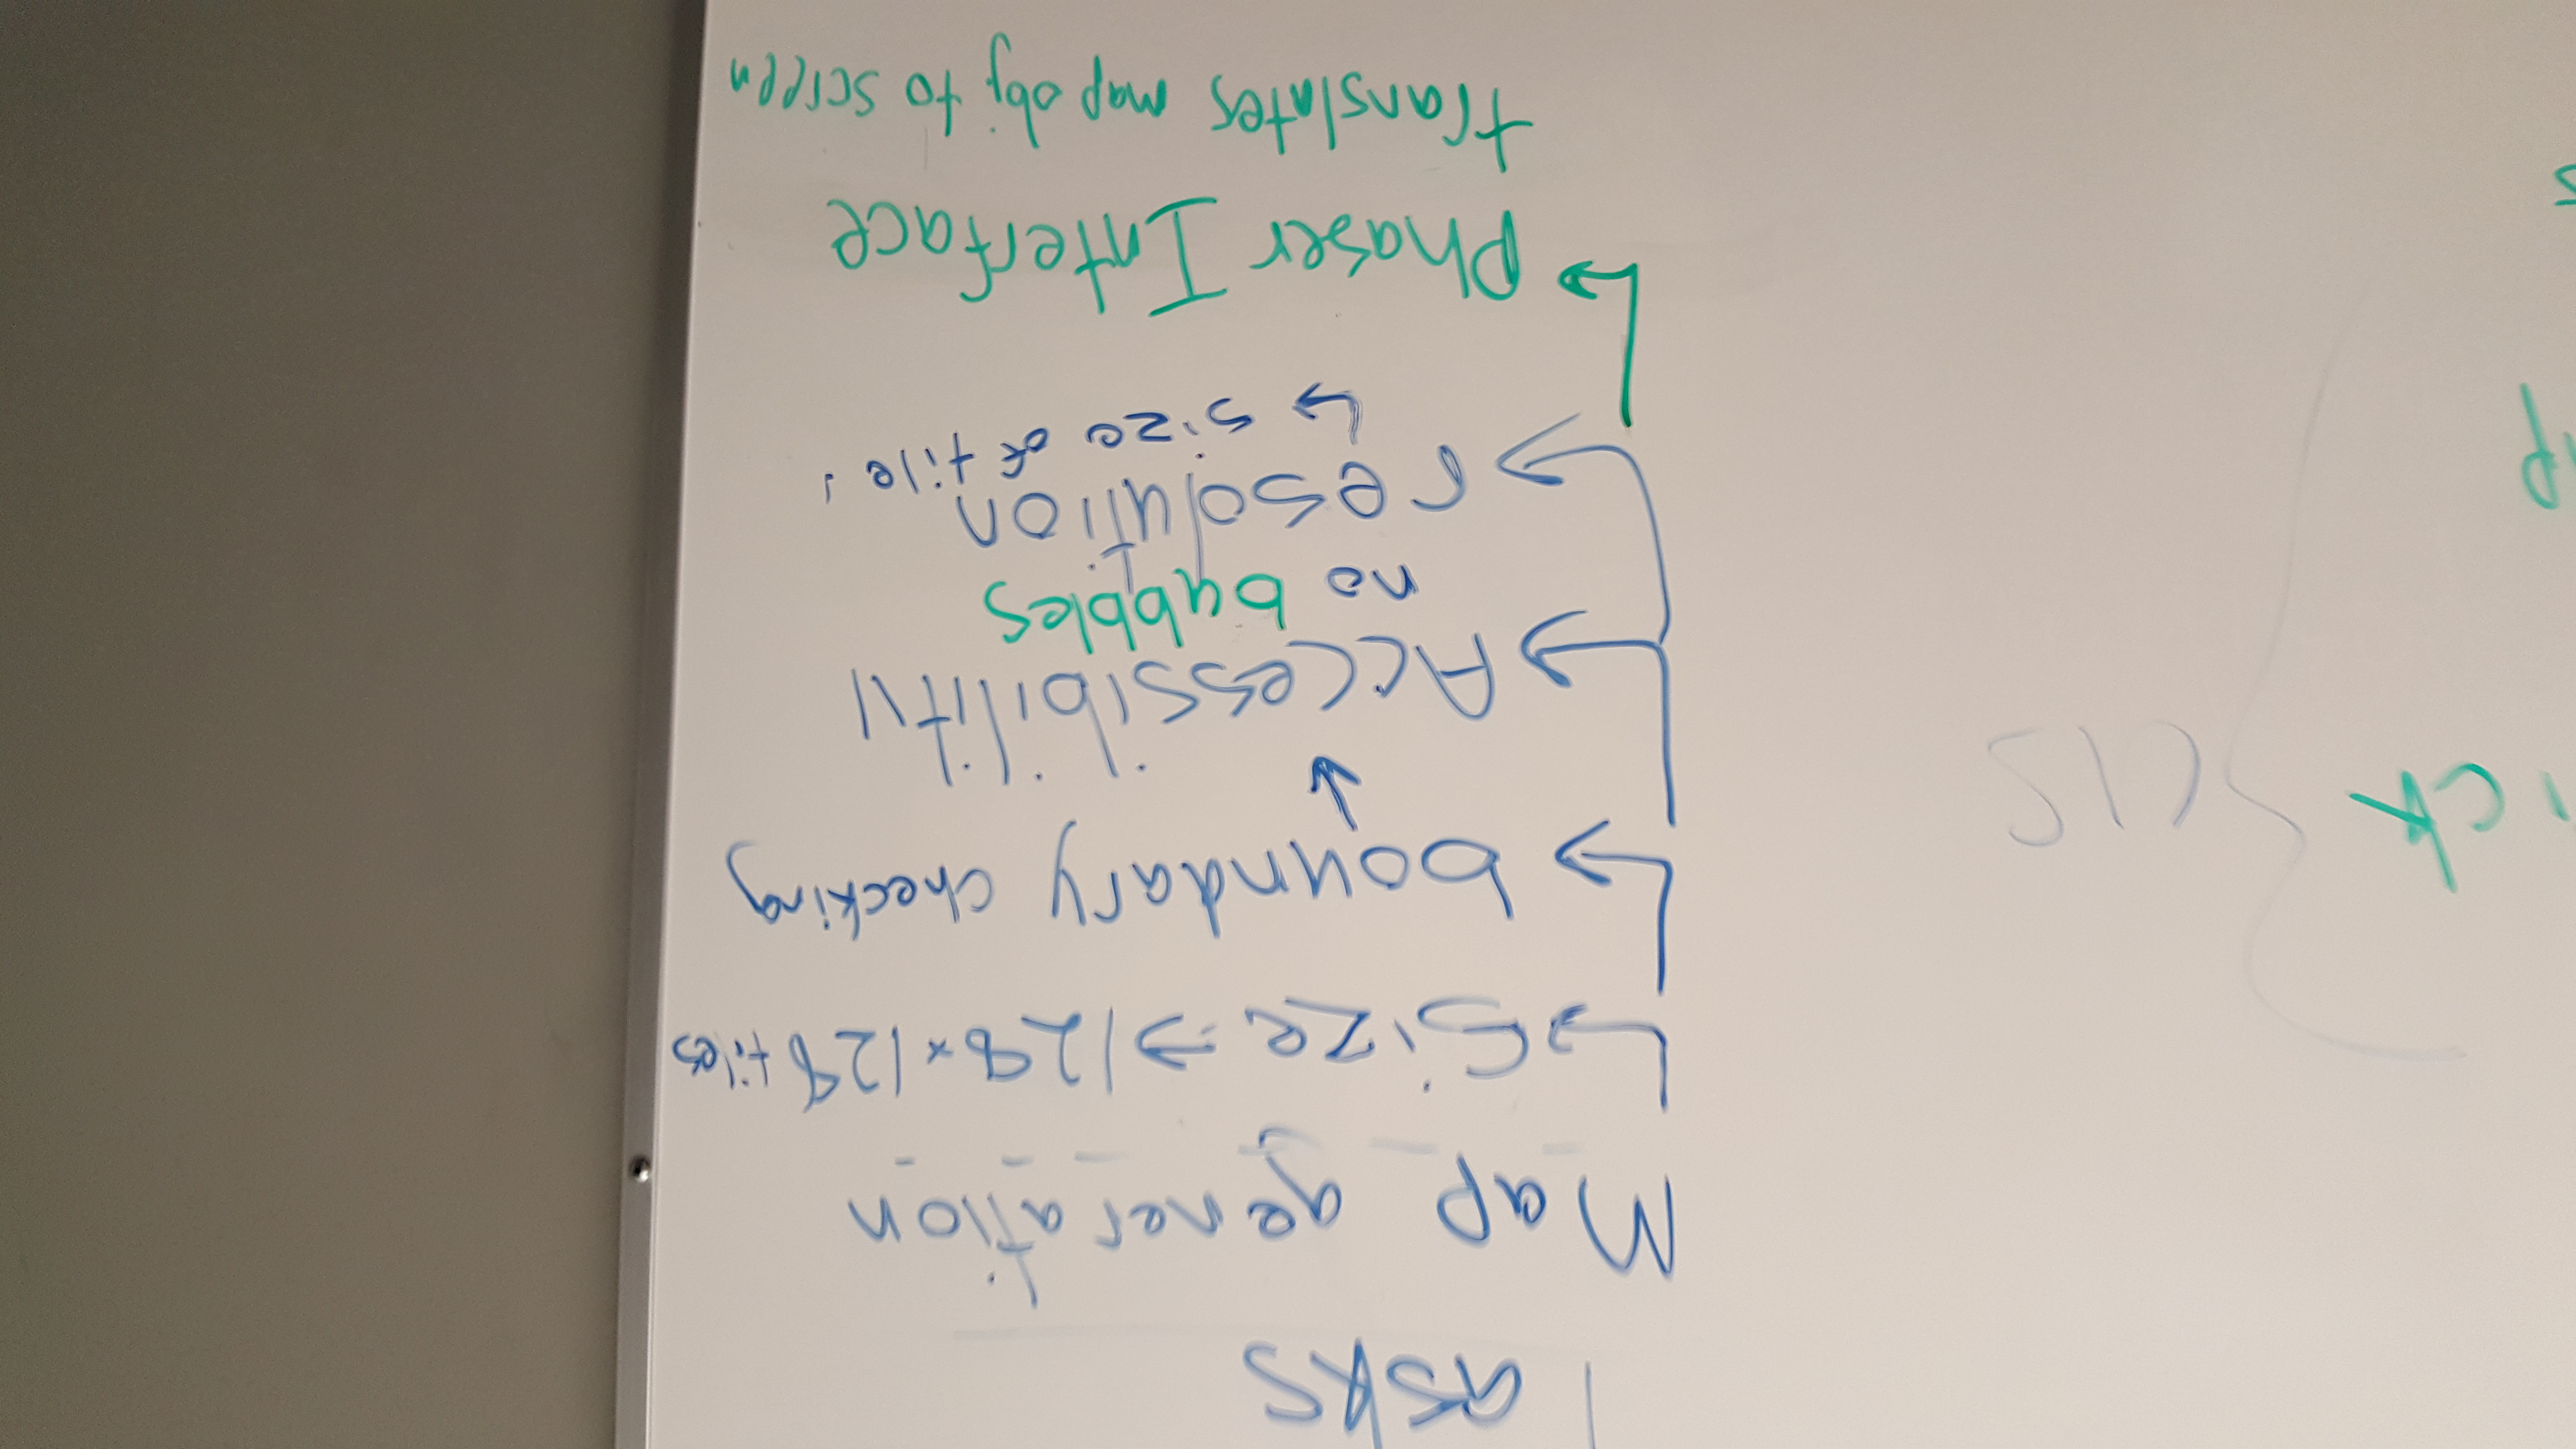 Tasks
Map generation
↳ Size → 128 × 128 tiles
↳ boundary checking
↓
↳ Accessibility
no bubbles
↳ resolution
↳ size of tile
↳ Phaser Interface
translates map obj to screen
ick
CIS
ip
s